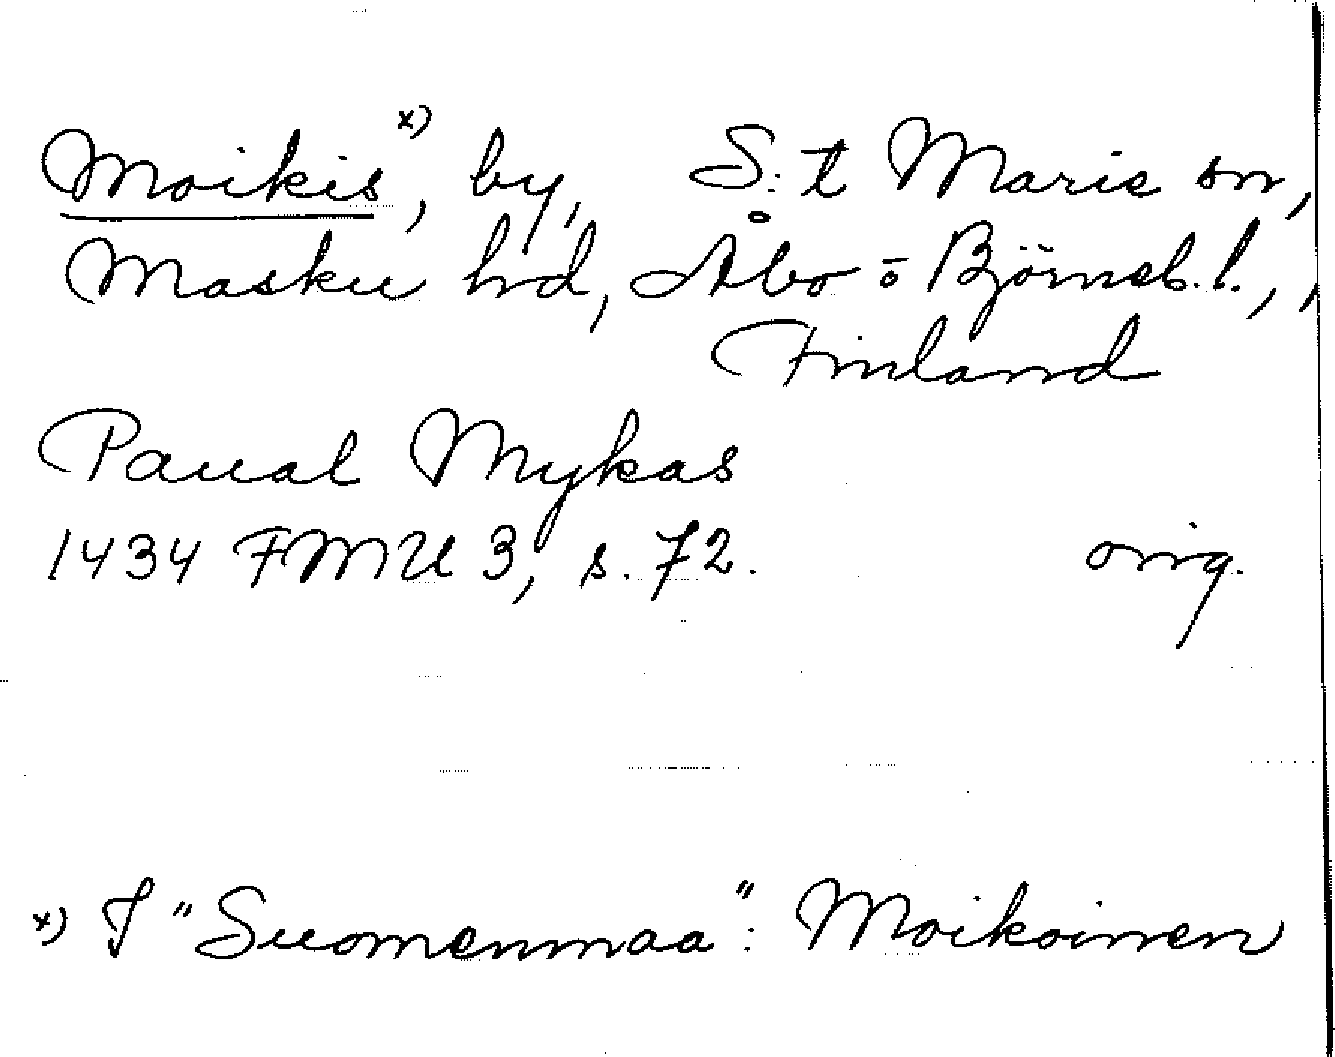 Moikis x), by, S:t Marie sn,
Masku hd, Åbo o Björneb. l.,
Finland
Paual Mykas
1434 FMU 3, s. 72. orig.
x) I "Suomenmaa": Moikoinen